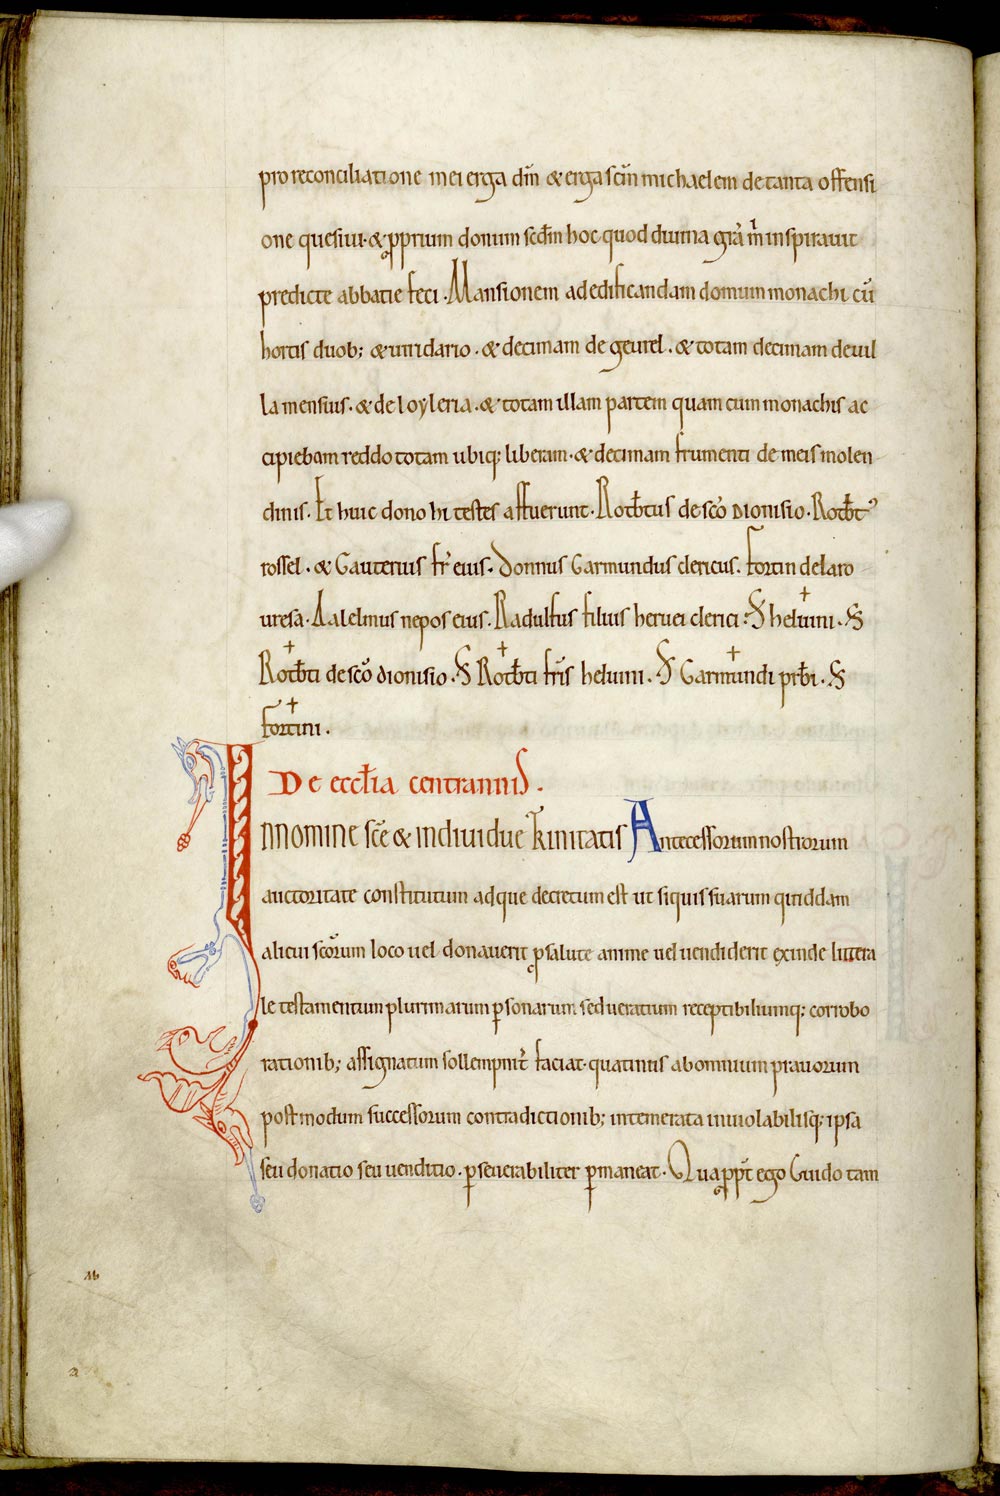 pro reconciliatione mei erga dn̄m & erga scm̄ michaelem de tanta offensi
one quesiui · & ꝓprium donum scd̄m hoc quod diuina grā m̄ inspirauit
predicte abbatie feci · Mansionem ad edificandam domum monachi cū
hortis duob; & uiridario · & decimam de geurel · & totam decimam de uil
lamensuis · & de loyleria · & totam illam partem quam cum monachis ac
cipiebam reddo totam ubiq; liberam · & decimam frumenti de meis molen
dinis · Et huic dono hi testes affuerunt · Rotb̄tus de scō dionisio · Rotb̄t᾿
rossel · & Gauterius fr̄ eius · Donnus Garmundus clericus · Fortin de laro
uresa · Aalelmus nepos eius · Radulfus filius heruei clerici · S heluini · S
Rotb̄ti de scō dionisio · S Rotb̄ti fr̄is heluini · S Garmundi prb̄i · S
fortini ·
De eccl̄ia centrannis ·
IN NOMINE sc̄e & indiuidue trinitatis Antecessorum nostrorum
auctoritate constitutum adque decretum est ut siquis suarum quiddam
alicui scōrum loco uel donauerit ꝓ salute anime uel uendiderit exinde littera
le testamentum plurimarum ꝑsonarum sed ueratium receptibiliumq; corrobo
rationib; assignatum sollempnit̄ faciat · quatinus ab omnium prauorum
postmodum successorum contradictionib; intemerata inuiolabilisq; ipsa
seu donatio seu uenditio · ꝑseuerabiliter ꝑmaneat · Quaꝓpt̄ ego Guido tam